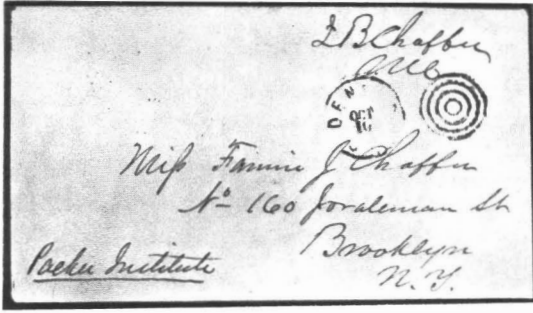 J B Chaffee
M C
DEN
OCT
10
Miss Fannie J Chaffee
No 160 Joraleman St
Brooklyn
N. Y.
Packer Institute